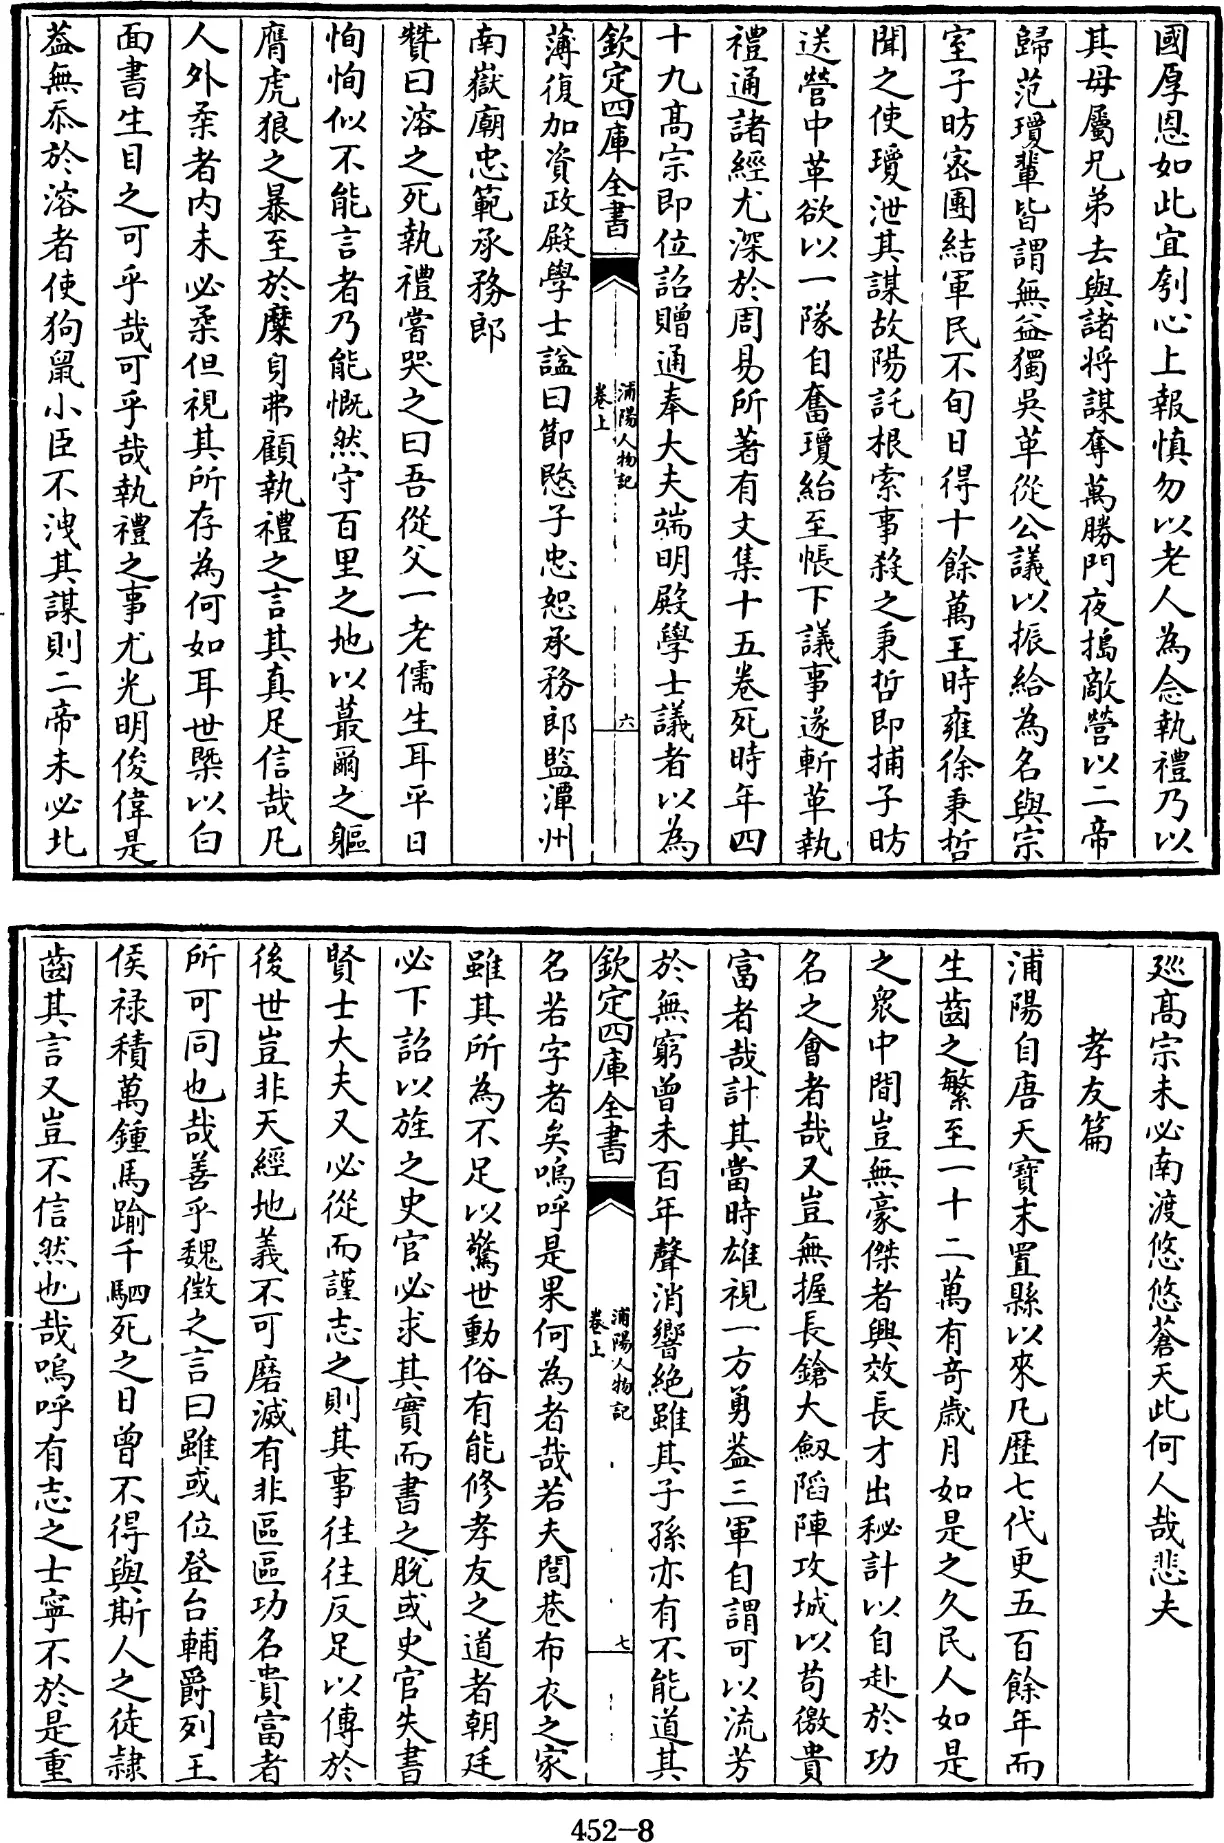 國厚恩如此宜刳心上報慎勿以老人為念執禮乃以
其母屬兄弟去與諸将謀奪萬勝門夜搗敵營以二帝
歸范瓊輩皆謂無益獨吳革從公議以振給為名與宗
室子昉宻團結軍民不旬日得十餘萬王時雍徐秉哲
聞之使瓊泄其謀故陽託根索事殺之秉哲即捕子昉
送營中革欲以一隊自奮瓊紿至帳下議事遂斬革執
禮通諸經尤深於周易所著有文集十五卷死時年四
十九髙宗即位詔贈通奉大夫端明殿學士議者以為
欽定四庫全書
浦陽人物記
卷上
六
薄復加資政殿學士謚曰節愍子忠恕承務郎監潭州
南嶽廟忠範承務郎
贊曰溶之死執禮嘗哭之曰吾從父一老儒生耳平日
恂恂似不能言者乃能慨然守百里之地以蕞爾之軀
膺虎狼之暴至於糜身弗顧執禮之言其真足信哉凡
人外柔者内未必柔但視其所存為何如耳世槩以白
面書生目之可乎哉可乎哉執禮之事尤光明俊偉是
葢無忝於溶者使狗鼠小臣不洩其謀則二帝未必北
廵髙宗未必南渡悠悠蒼天此何人哉悲夫
孝友篇
浦陽自唐天寶末置縣以來凡歴七代更五百餘年而
生齒之繁至一十二萬有奇歲月如是之久民人如是
之眾中間豈無豪傑者興效長才出秘計以自赴於功
名之會者哉又豈無握長鎗大劒陷陣攻城以苟徼貴
富者哉計其當時雄視一方勇葢三軍自謂可以流芳
於無窮曾未百年聲消響絶雖其子孫亦有不能道其
欽定四庫全書
浦陽人物記
卷上
七
名若字者矣嗚呼是果何為者哉若夫閭巷布衣之家
雖其所為不足以驚世動俗有能修孝友之道者朝廷
必下詔以旌之史官必求其實而書之脫或史官失書
賢士大夫又必從而謹志之則其事往往反足以傳於
後世豈非天經地義不可磨滅有非區區功名貴富者
所可同也哉善乎魏徵之言曰雖或位登台輔爵列王
侯禄積萬鍾馬踰千駟死之日曾不得與斯人之徒隷
齒其言又豈不信然也哉嗚呼有志之士寧不於是重
452-8